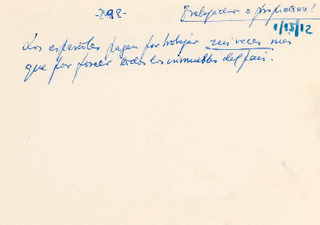 -292-
Trabajador o propietario?
1/15/12
Los españoles pagan por trabajar seis veces mas
que por poseer todos los inmuebles del país.